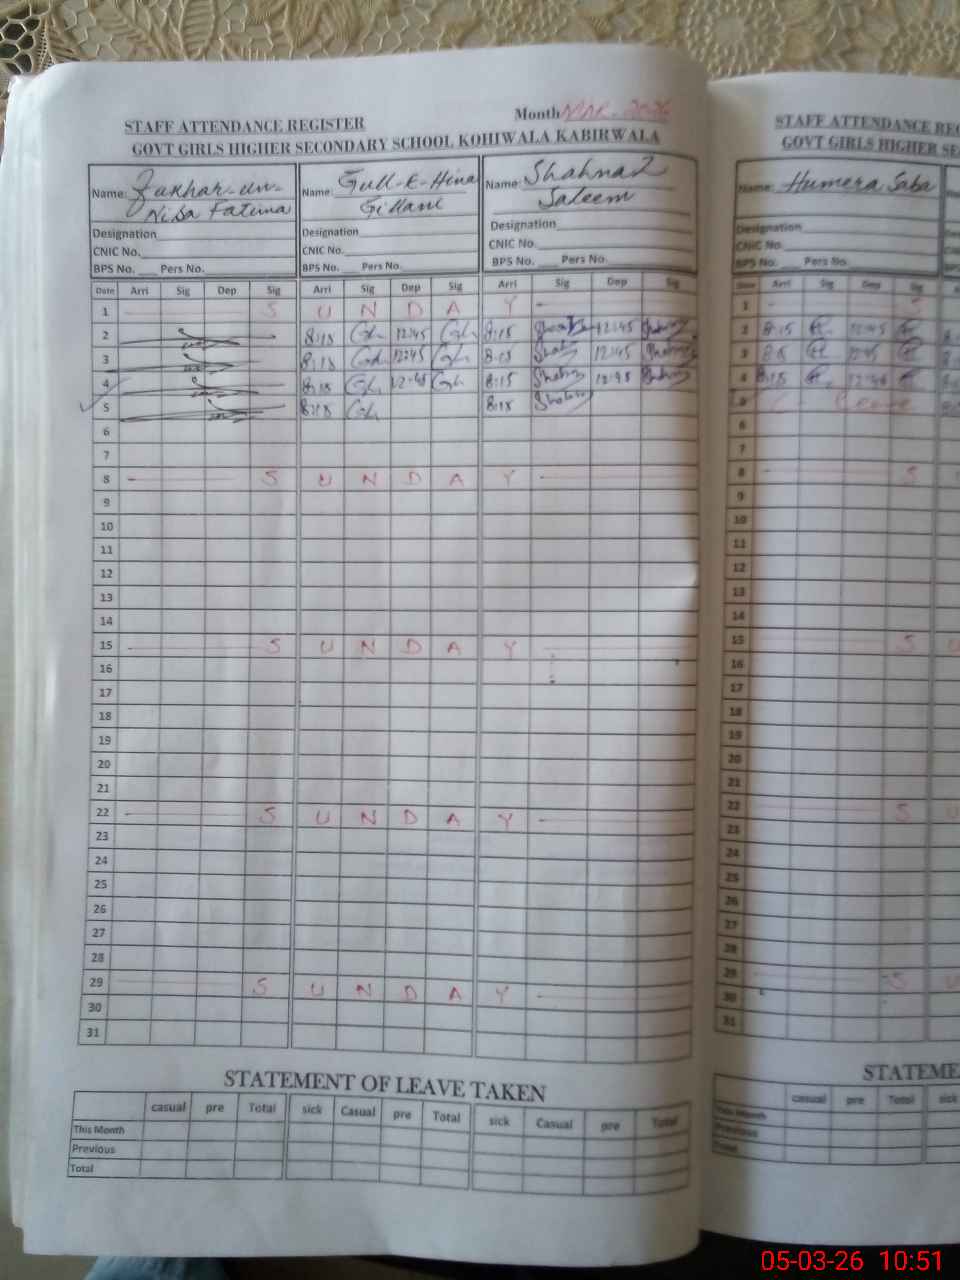 STAFF ATTENDANCE REGISTER
Month Mar - 2026
GOVT GIRLS HIGHER SECONDARY SCHOOL KOHIWALA KABIRWALA
Name: Fakhar-un-Nisa Fatima
Designation
CNIC No.
BPS No. Pers No.
Name: Gull-E-Hina Gillani
Designation
CNIC No.
BPS No. Pers No.
Name: Shahnaz Saleem
Designation
CNIC No.
BPS No. Pers No.
Date Arri Sig Dep Sig Arri Sig Dep Sig Arri Sig Dep Sig
1 S U N D A Y
2 8:15 Gh 12:45 Gh 8:15 12:45
3 8:15 Gh 12:45 Gh 8:15 12:45
4 8:15 Gh 12:45 Gh 8:15 12:45
5 8:15 Gh 8:15
6
7
8 S U N D A Y
9
10
11
12
13
14
15 S U N D A Y
16
17
18
19
20
21
22 S U N D A Y
23
24
25
26
27
28
29 S U N D A Y
30
31
STATEMENT OF LEAVE TAKEN
casual pre Total sick Casual pre Total sick Casual pre Total
This Month
Previous
Total
STAFF ATTENDANCE REG
GOVT GIRLS HIGHER SE
Name: Humera Saba
Designation
CNIC No.
BPS No. Pers No.
Date Arri Sig Dep Sig
1 S
2 8:15 12:45
3 8:15 12:45
4 8:15 12:45
5 Leave
6
7
8 S
9
10
11
12
13
14
15 S U
16
17
18
19
20
21
22 S U
23
24
25
26
27
28
29 S U
30
31
STATEME
casual pre Total sick
This Month
Previous
Total
05-03-26 10:51